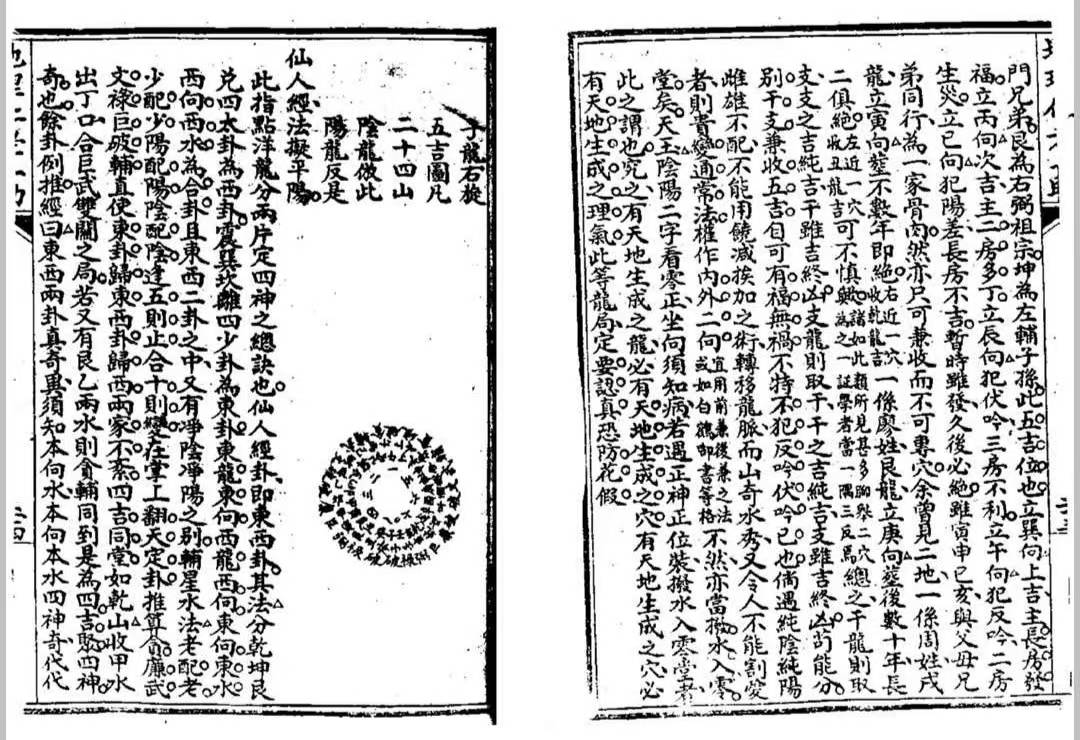 門兄弟艮為右弼祖宗坤為左輔子孫此五吉位也立巽向上吉主長房發
福立丙向次吉主二房多丁立辰向犯伏吟三房不利立午向犯反吟二房
生災立巳向犯陽差長房不吉暫時雖發久後必絕雖寅申巳亥與父母兄
弟同行為一家骨肉然亦只可兼收而不可專穴余曾見二地一係周姓戌
龍立寅向塟不數年即絕右近一穴收乾龍吉一係廖姓艮龍立庚向塟後數十年長
二俱絕左近一穴收丑龍吉可不慎歟諸如此類所見甚多聊舉二穴為之一証學者當一隅三反焉總之干龍則取
支支之吉純吉干雖吉終凶支龍則取干干之吉純吉支雖吉終凶苟能分
別干支兼收五吉自可有福無禍不特不犯反吟伏吟已也倘遇純陰純陽
雌雄不配不能用饒減挨加之術轉移龍脈而山奇水秀又令人不能割愛
者則貴變通常法權作內外二向宜用前兼後兼之法或如白鶴御書等格不然亦當撥水入零
堂矣天玉陰陽二字看零正坐向須知病若遇正神正位裝撥水入零堂者
此之謂也究之有天地生成之龍必有天地生成之穴有天地生成之穴必
有天地生成之理氣此等龍局定要認真恐防花假
子龍右旋
五吉圖凡
二十四山
陰龍倣此
陽龍反是
仙人經法擬平陽
此指點洋龍分兩片定四神之總訣也仙人經卦即東西卦其法分乾坤艮
兌四太卦為西卦震巽坎離四少卦為東卦東龍東向西龍西向東向東水
西向西水為合卦且東西二卦之中又有淨陰淨陽之別輔星水法老配老
少配少陽配陽陰配陰逢五則止合十則變在掌上翻天定卦推算貪廉武
文祿巨破輔直使東卦歸東西卦歸西兩家不紊四吉同堂如乾山收甲水
出丁口合巨武雙關之局若又有艮乙兩水則貪輔同到是為四吉聚四神
奇也餘卦例推經曰東西兩卦真奇異須知本向水本向本水四神奇代代